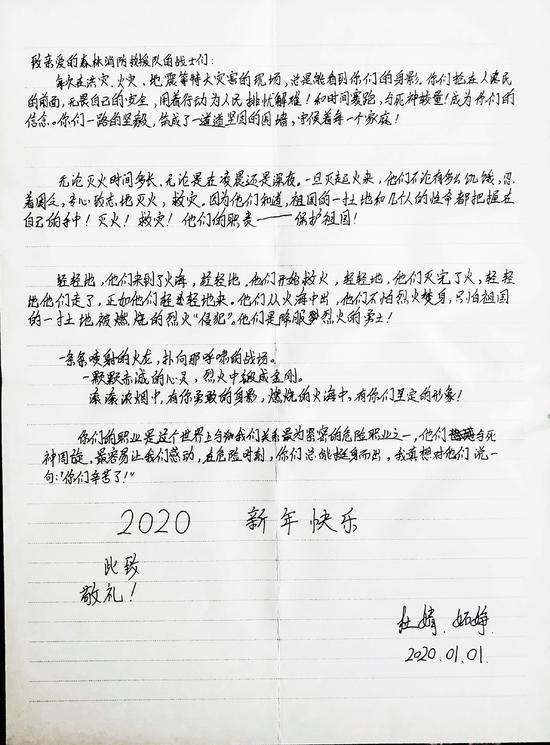 致亲爱的森林消防救援队的战士们:
每次在洪灾、火灾、地震等特大灾害的现场,总是能看到你们的身影。你们抢在人民
的前面,无畏自己的安全,用着行动为人民排忧解难!和时间赛跑,与死神较量!成为你们的
信念。你们一路的坚毅,筑成了一道道坚固的围墙,守候着每一个家庭!
无论灭火时间多长、无论是在凌晨还是深夜。一旦灭起火来,他们不论有多么饥饿,忍
着困乏,专心致志地灭火,救灾。因为他们知道,祖国的一扌土地和几个人的性命都把握在
自己的手中!灭火!救灾!他们的职责——保护祖国!
轻轻地,他们来到了火海,轻轻地,他们开始救火,轻轻地,他们灭完了火,轻轻
地他们走了,正如他们轻轻地来。他们从火海中出,他们不怕烈火焚身,只怕祖国
的一扌土地被燃烧的烈火“侵犯”。他们是降服烈火的勇士!
一条条喷射的火龙,扑向那呼啸的战场。
一颗颗赤诚的心灵,烈火中锻成金刚。
滚滚浓烟中,有你勇敢的身影,燃烧的火海中,有你们坚定的形象!
你们的职业是这个世界上与和我们关系最为紧密的危险职业之一,他们与死
神周旋,最容易让我们感动,在危险时刻,你们总能挺身而出,我真想对他们说一
句:“你们辛苦了!”
2020 新年快乐
此致
敬礼!
杜婧
2020.01.01.